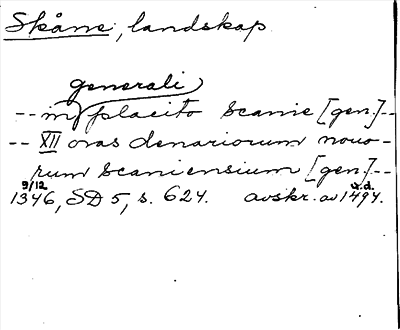 Skåne, landskap
generali
-- in placito Scanie [gen.]--
-- XII oras denariorum nouo-
rum Scaniensium [gen.]--
9/12
1346, SD 5, s. 624. avskr. av 1494.
u.d.